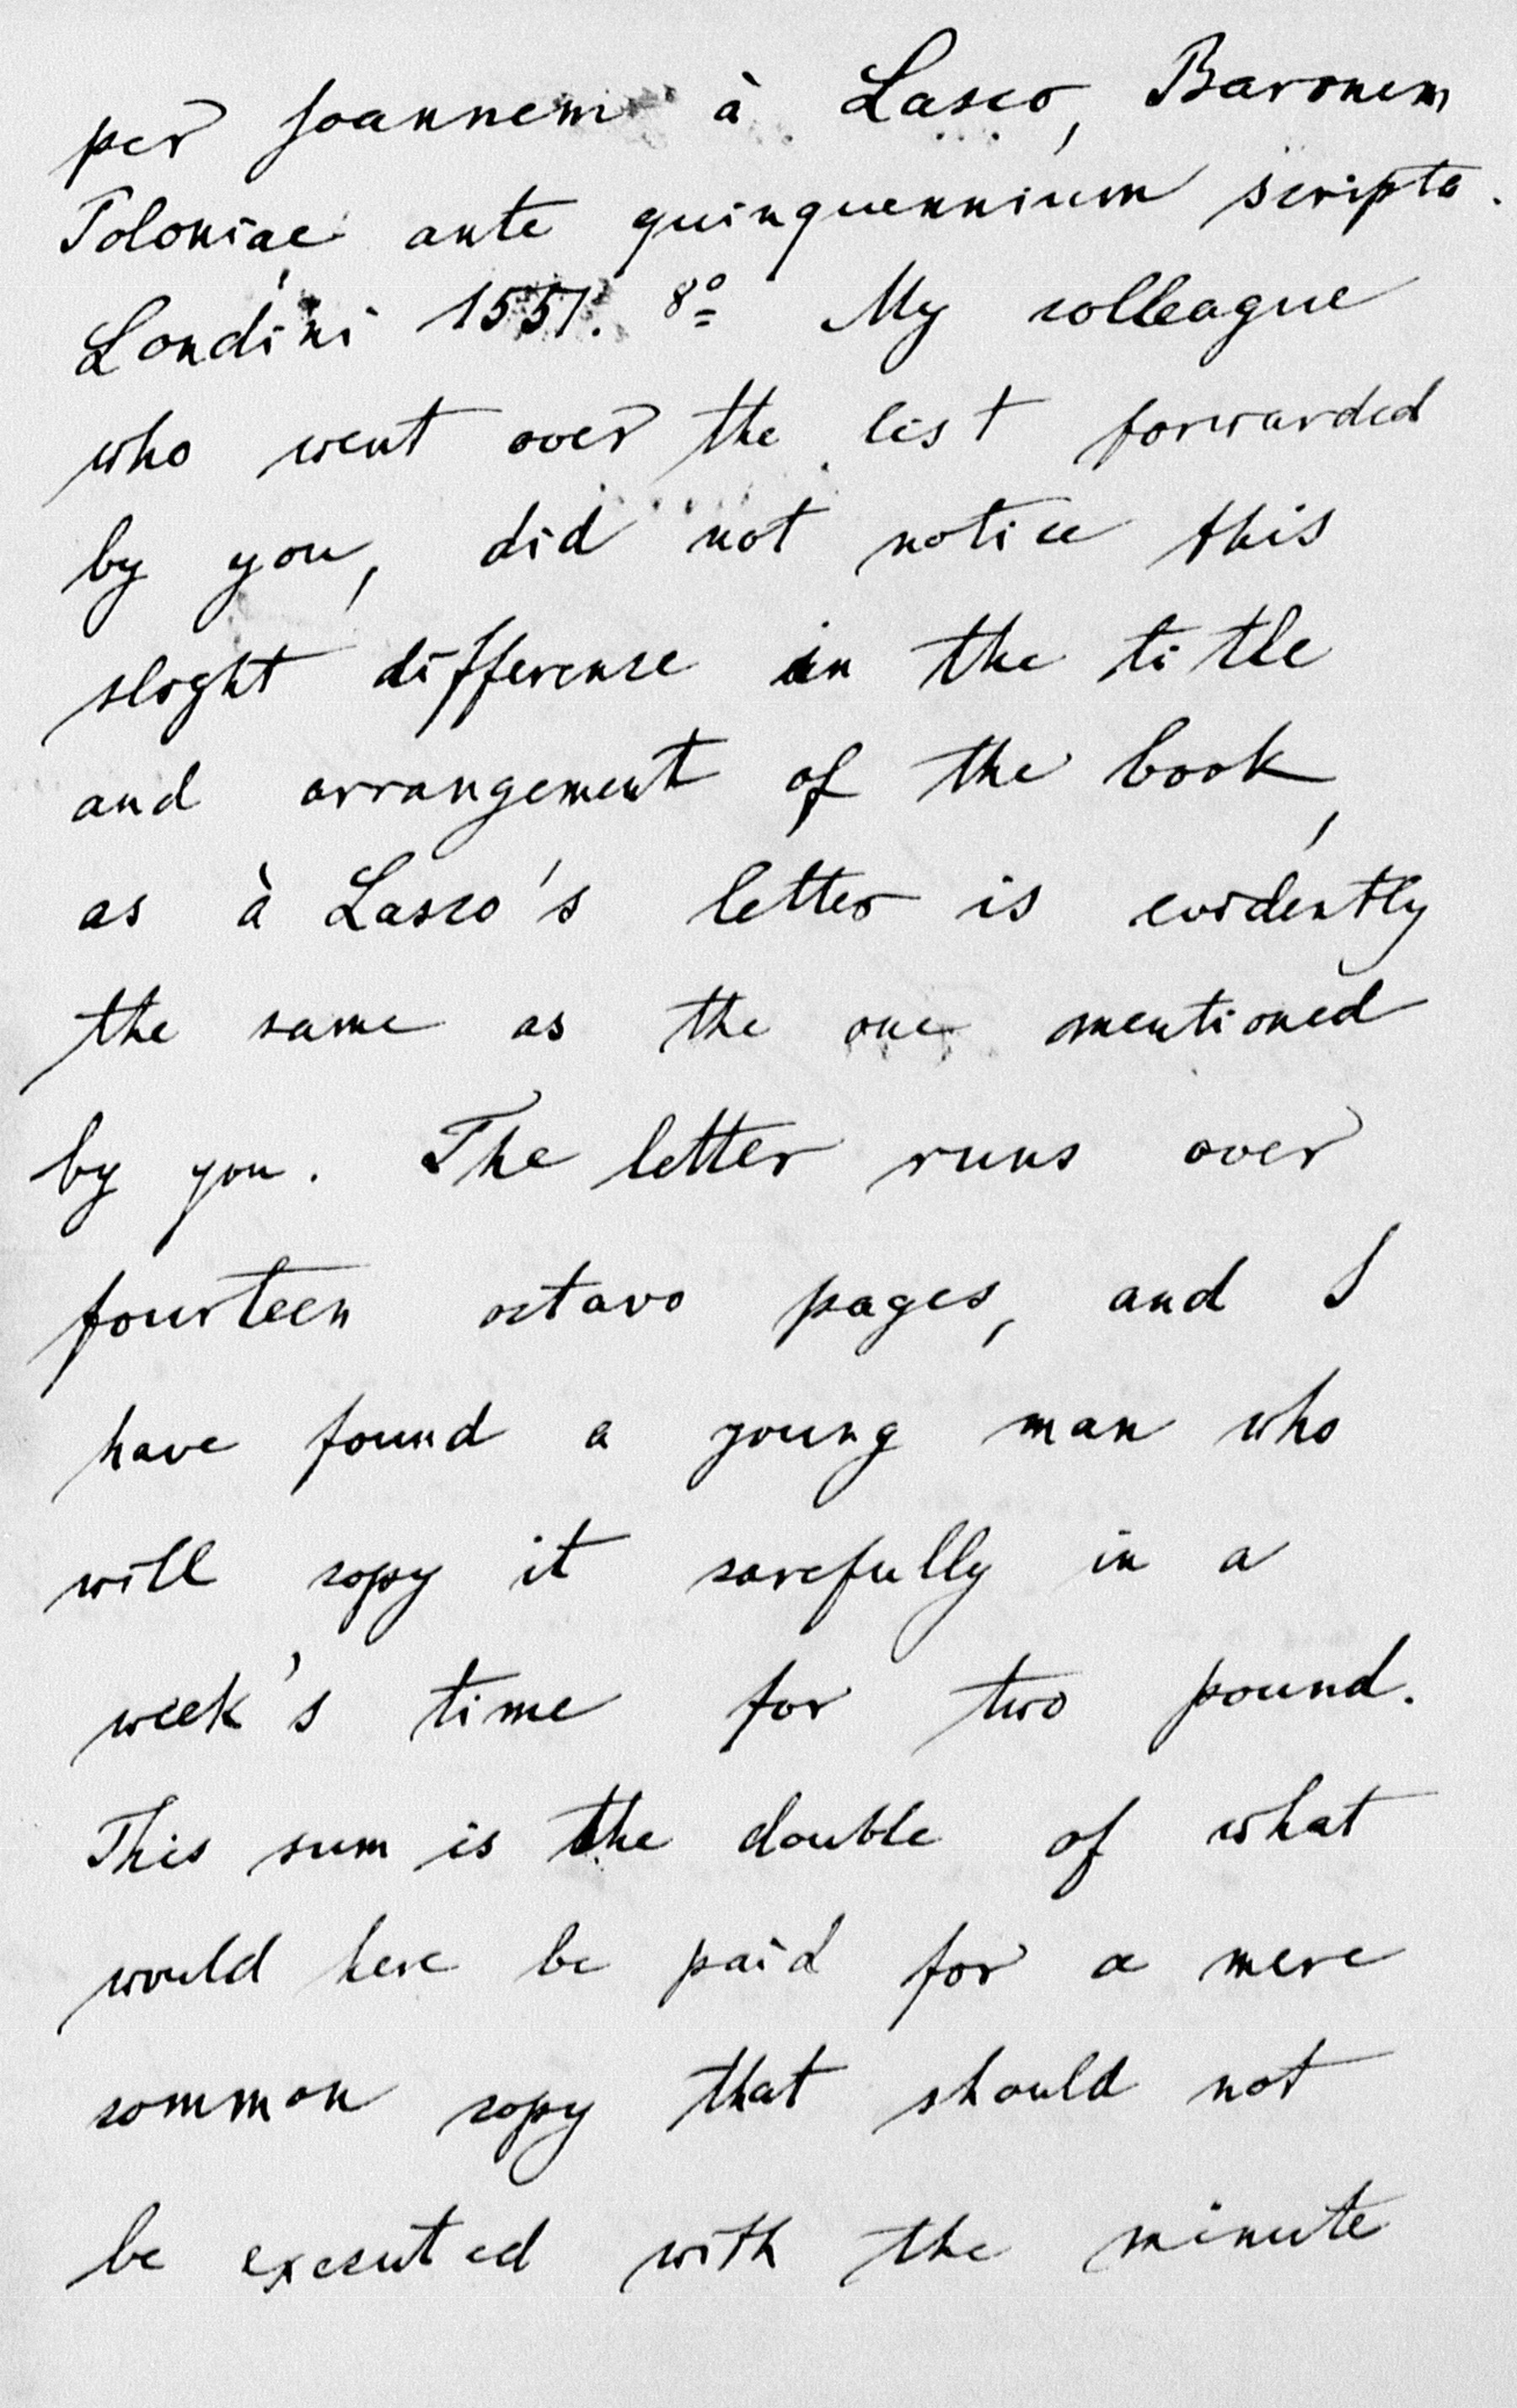 per Joannem à Lasco, Baronem
Poloniae ante quinquennium scripta.
Londini 1551. 8º My colleague
who went over the list forwarded
by you, did not notice this
slight difference in the title
and arrangement of the book,
as à Lasco's letter is evidently
the same as the one mentioned
by you. The letter runs over
fourteen octavo pages, and I
have found a young man who
will copy it carefully in a
week's time for two pound.
This sum is the double of what
would here be paid for a mere
common copy that should not
be executed with the minute